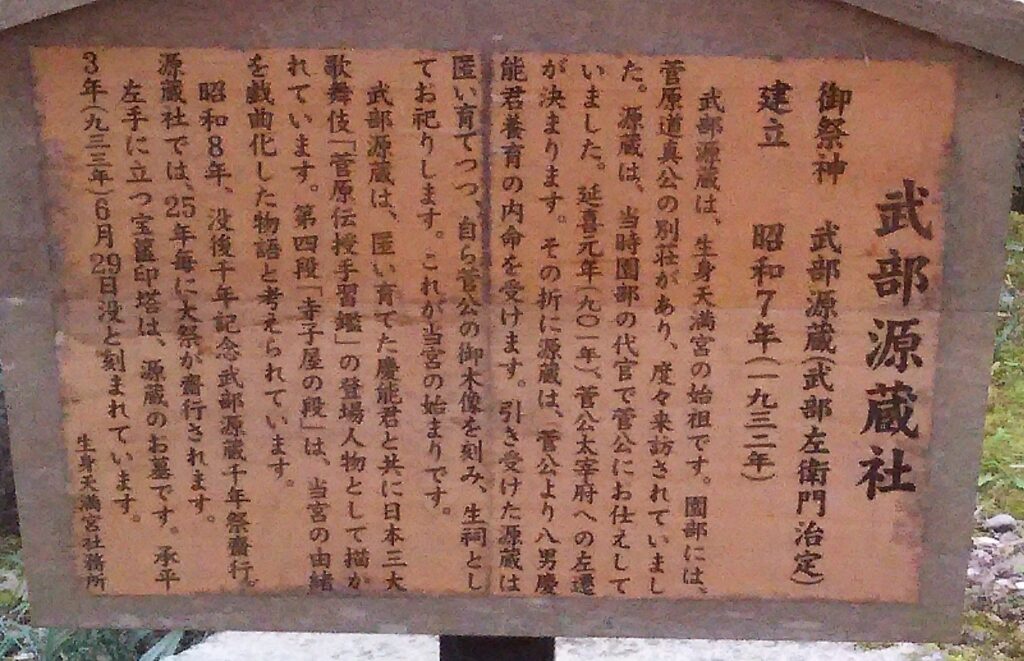 武部源蔵社
御祭神　武部源蔵(武部左衛門治定)
建立　昭和7年(一九三二年)
武部源蔵は、生身天満宮の始祖です。園部には、
菅原道真公の別荘があり、度々来訪されていまし
た。源蔵は、当時園部の代官で菅公にお仕えして
いました。延喜元年(九〇一年)、菅公太宰府への左遷
が決まります。その折に源蔵は、菅公より八男慶
能君養育の内命を受けます。引き受けた源蔵は
匿い育てつつ、自ら菅公の御木像を刻み、生祠とし
てお祀りします。これが当宮の始まりです。
武部源蔵は、匿い育てた慶能君と共に日本三大
歌舞伎「菅原伝授手習鑑」の登場人物として描か
れています。第四段「寺子屋の段」は、当宮の由緒
を戯曲化した物語と考えられています。
昭和8年、没後千年記念武部源蔵千年祭齋行。
源蔵社では、25年毎に大祭が齋行されます。
左手に立つ宝篋印塔は、源蔵のお墓です。承平
3年(九三三年)6月29日没と刻まれています。
生身天満宮社務所